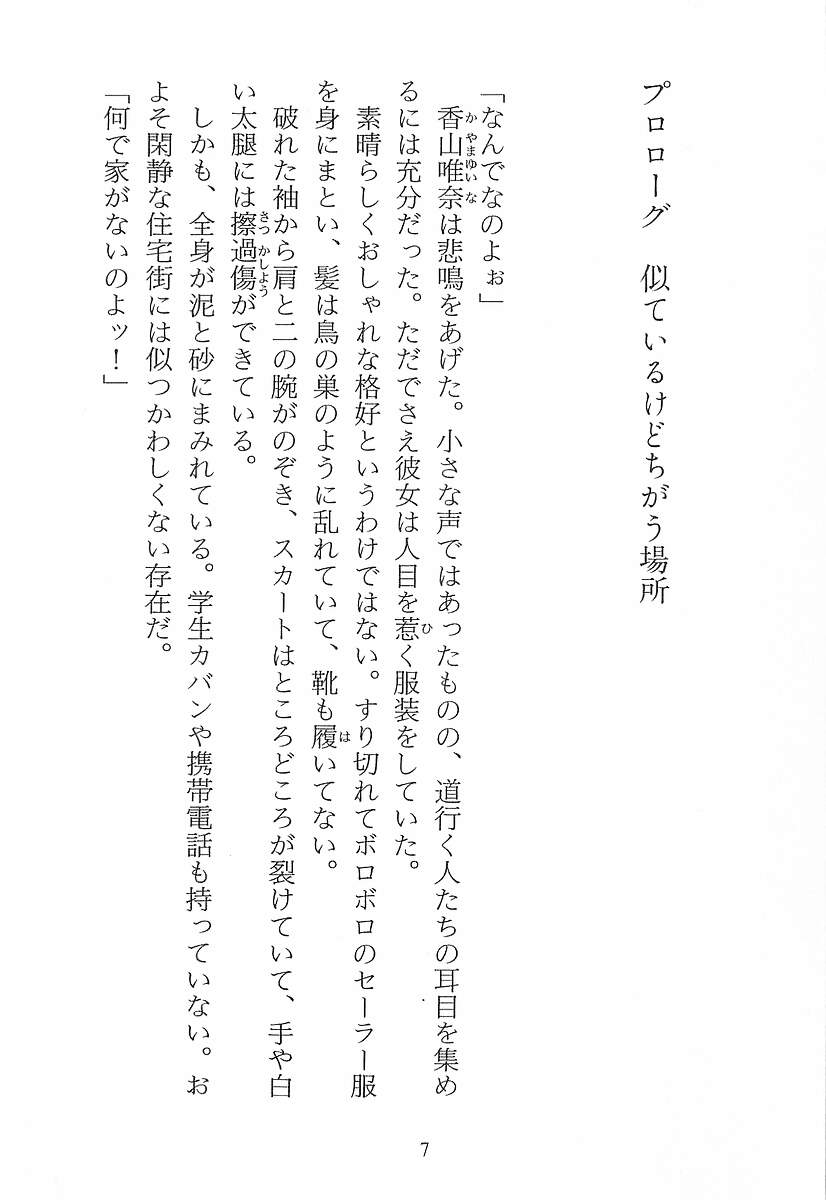 プロローグ　似ているけどちがう場所
「なんでなのよぉ」
　香山唯奈は悲鳴をあげた。小さな声ではあったものの、道行く人たちの耳目を集め
るには充分だった。ただでさえ彼女は人目を惹く服装をしていた。
　素晴らしくおしゃれな格好というわけではない。すり切れてボロボロのセーラー服
を身にまとい、髪は鳥の巣のように乱れていて、靴も履いてない。
　破れた袖から肩と二の腕がのぞき、スカートはところどころが裂けていて、手や白
い太腿には擦過傷ができている。
　しかも、全身が泥と砂にまみれている。学生カバンや携帯電話も持っていない。お
よそ閑静な住宅街には似つかわしくない存在だ。
「何で家がないのよッ！」
かやまゆいな
ひ
は
さつかしよう
7